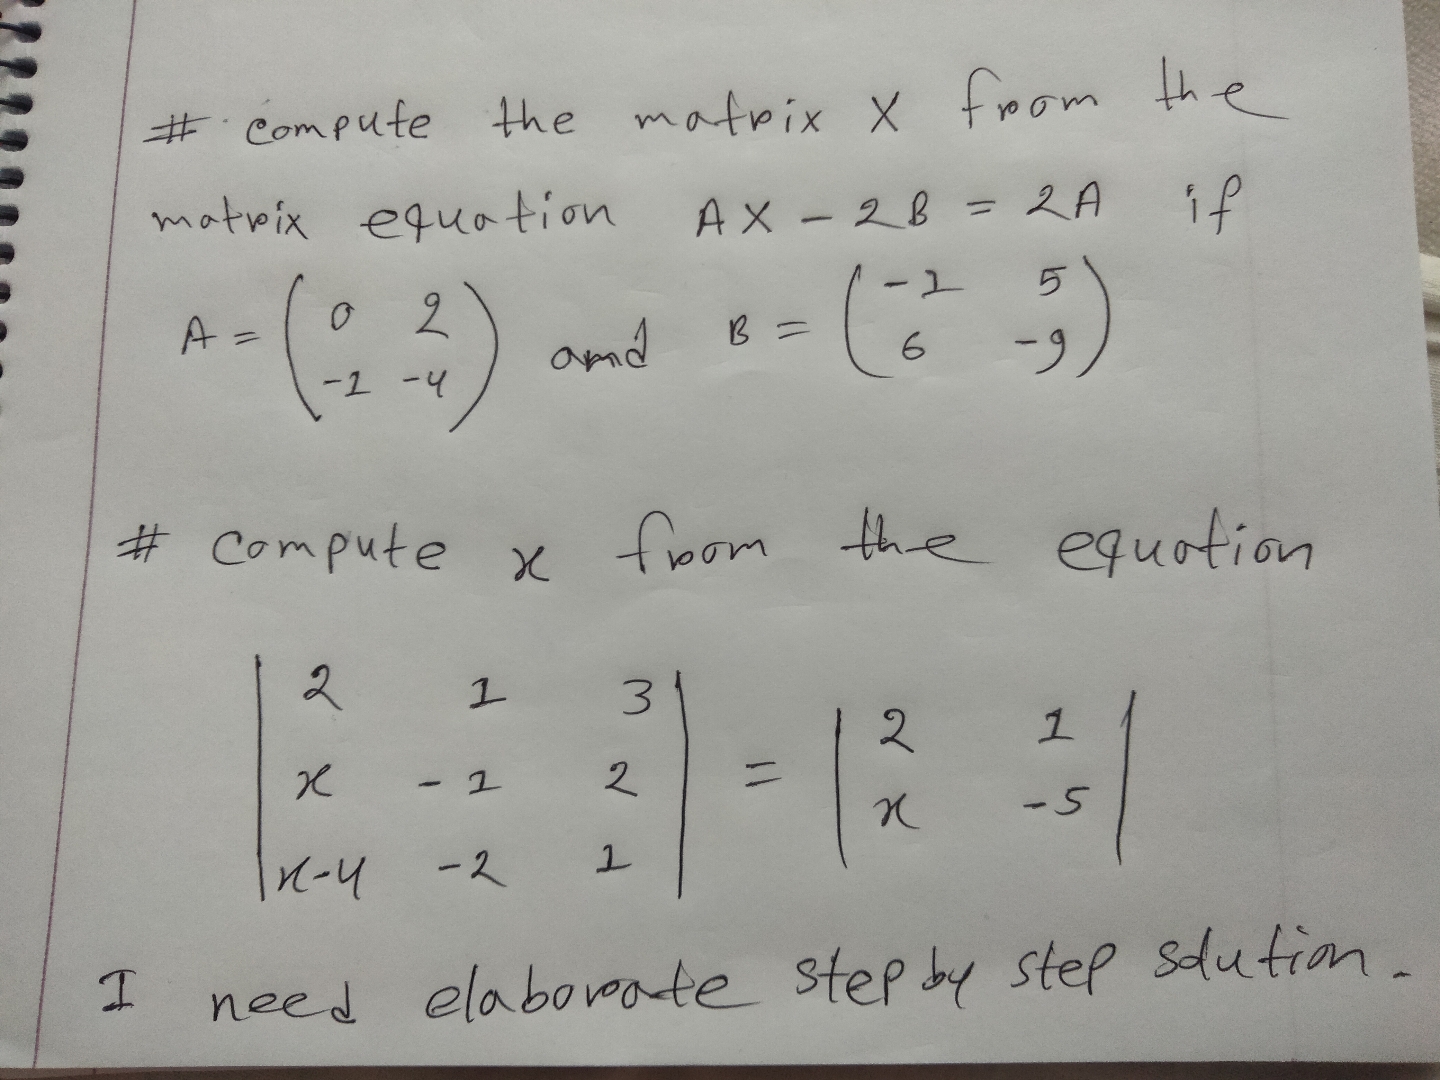 # compute the matrix X from the
matrix equation AX - 2B = 2A if
A = ( 0 2 and B = ( -1 5
-1 -4 ) 6 -9 )
# compute x from the equation
| 2 1 3 | = | 2 1 |
| x -1 2 | | x -5 |
| x-4 -2 1 |
I need elaborate step by step solution.